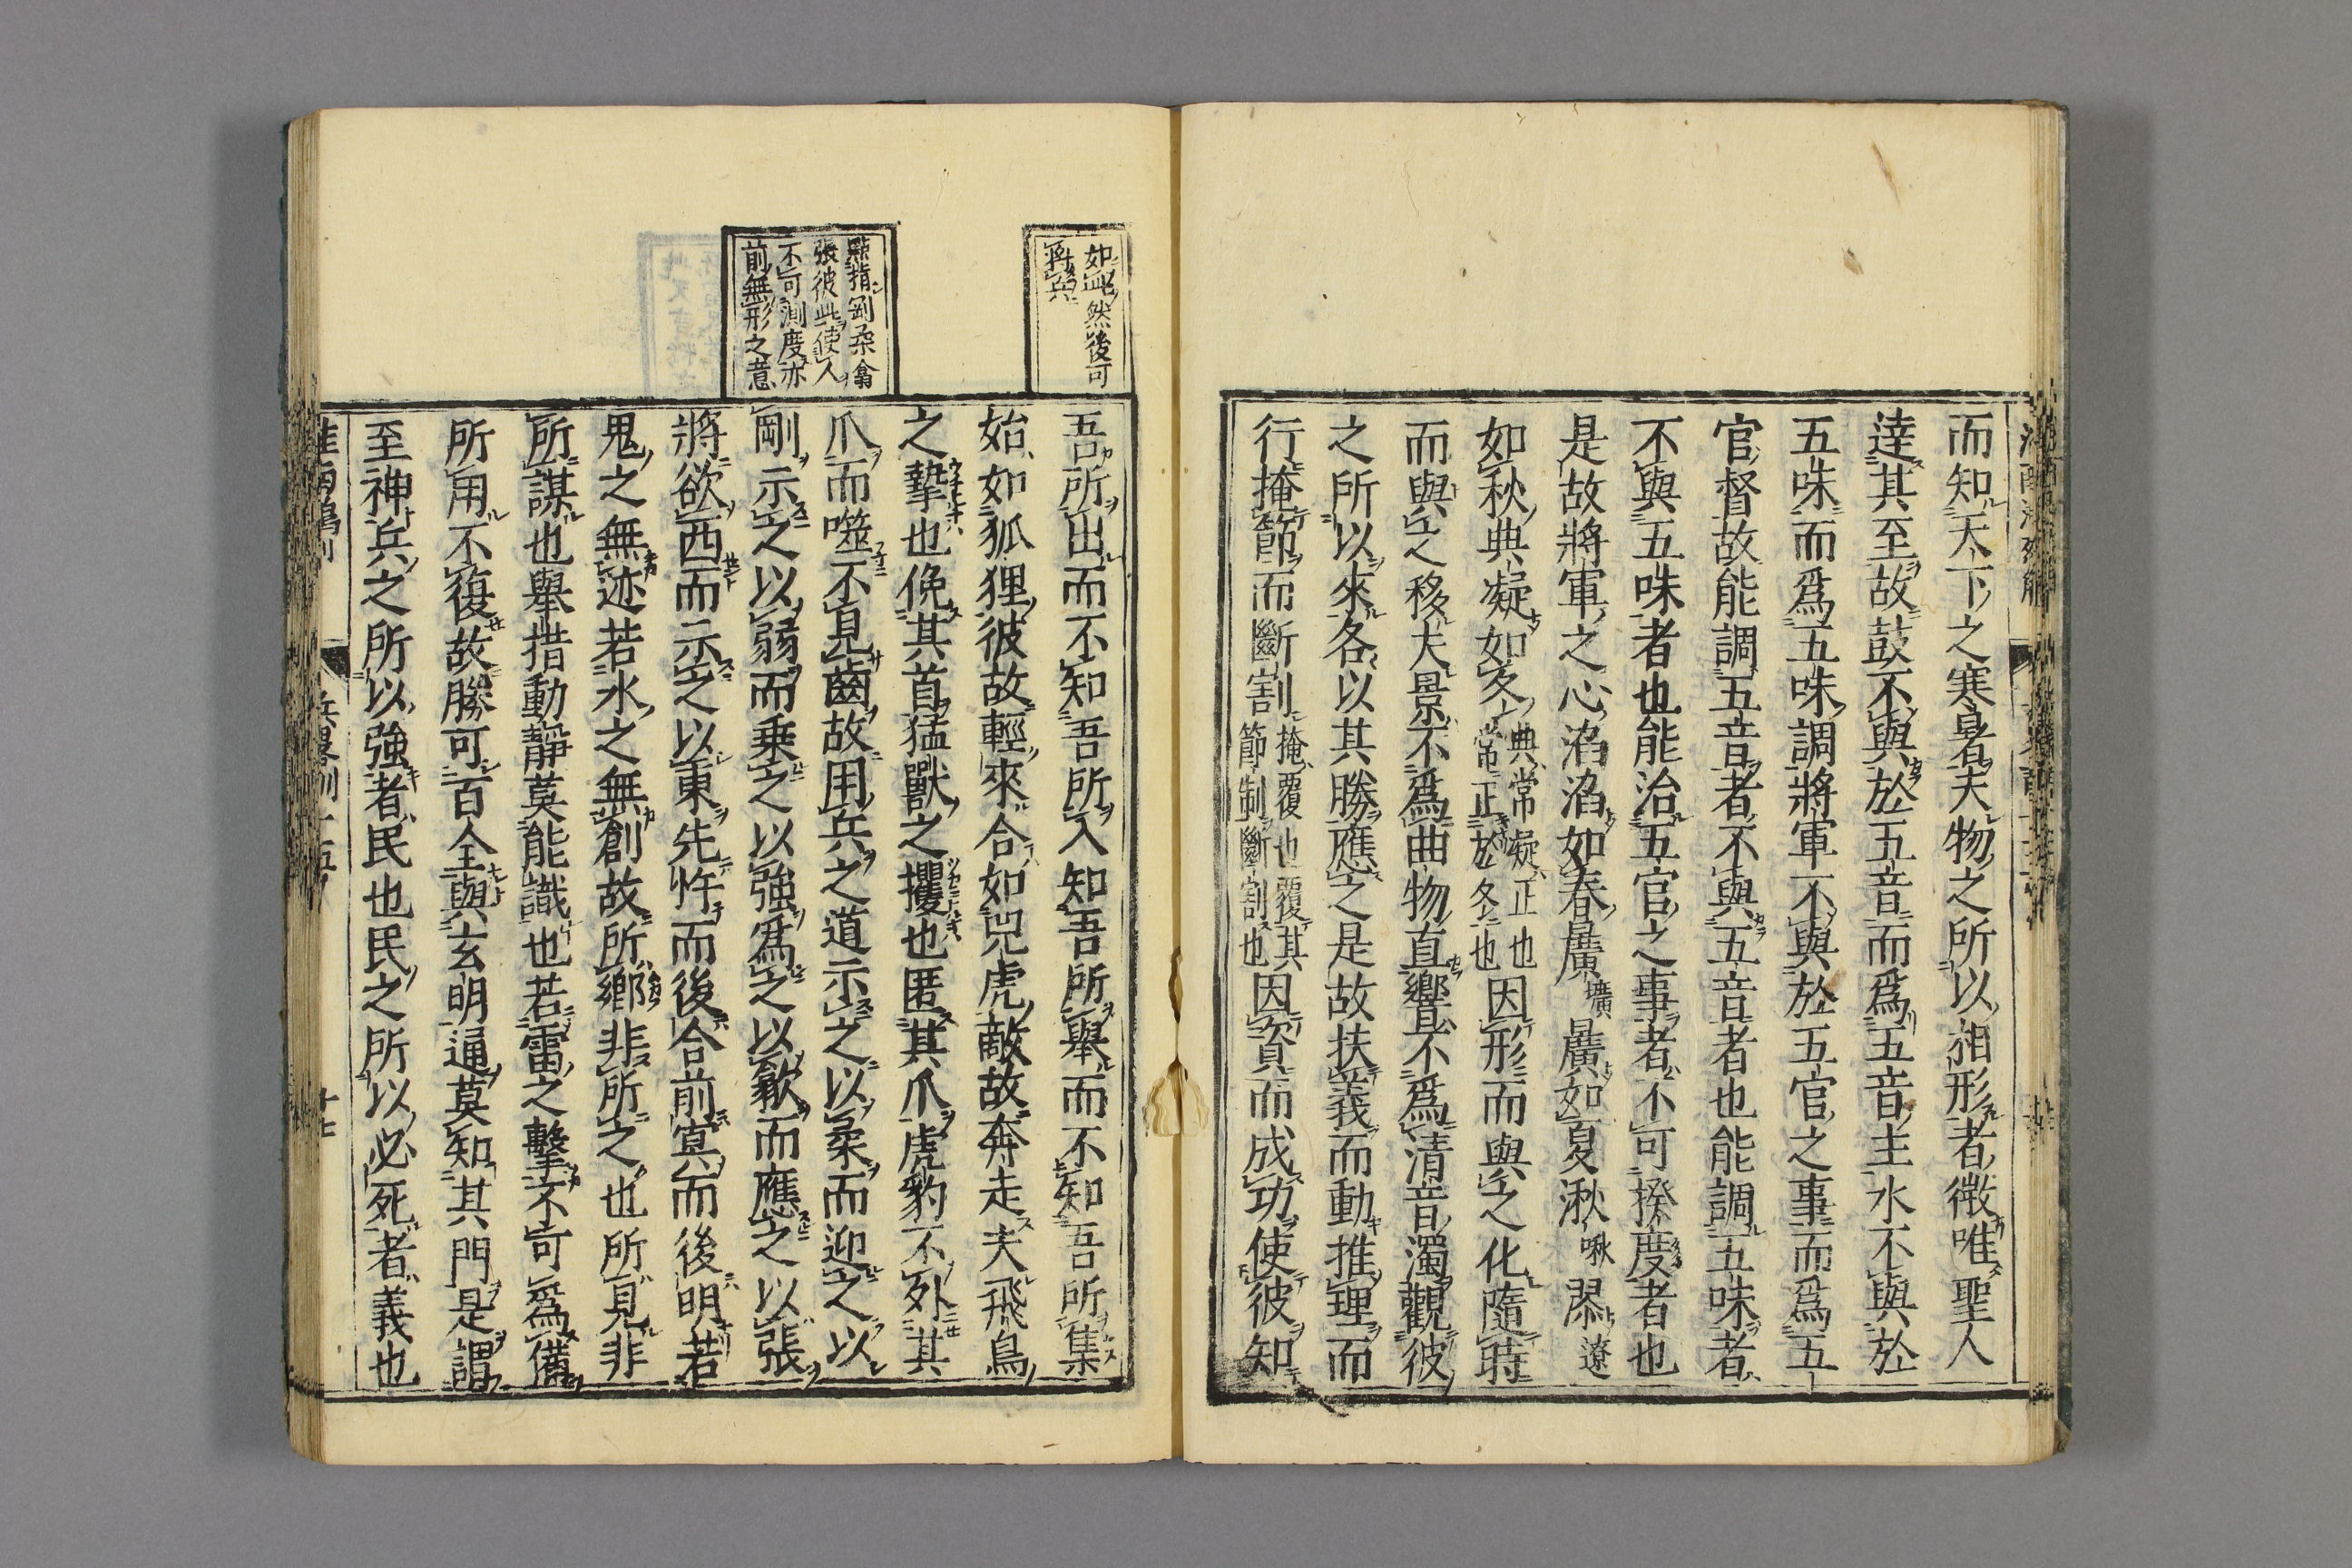 而知天下之寒暑夫物之所以相形者微唯聖人
達其至故鼓不與於五音而爲五音主水不與於
五味而爲五味調將軍不與於五官之事而爲五
官督故能調五音者不與五音者也能調五味者
不與五味者也能治五官之事者不可揆度者也
是故將軍之心滔滔如春曠壙曠如夏湫啾漻遼
如秋典凝如冬典常凝正也常正於冬也因形而與之化隨時
而與之移夫景不爲曲物直響不爲清音濁觀彼
之所以來各以其勝應之是故扶義而動推理而
行掩節而斷割掩覆也覆其節制斷割也因資而成功使彼知
如此然後可
將兵
吾所出而不知吾所入知吾所舉而不知吾所集
始如狐狸彼故輕來合如兕虎敵故奔走夫飛鳥
之摯也俛其首猛獸之攫也匿其爪虎豹不外其
點指剛柔翕
張彼此使人
不可測度亦
前無形之意
爪而噬不見齒故用兵之道示之以柔而迎之以
剛示之以弱而乗之以強爲之以歙而應之以張
將欲西而示之以東先忤而後合前冥而後明若
鬼之無迹若水之無創故所鄉非所之也所見非
所謀也舉措動靜莫能識也若雷之擊不可爲備
所用不復故勝可百全與玄明通莫知其門是謂
至神兵之所以強者民也民之所以必死者義也